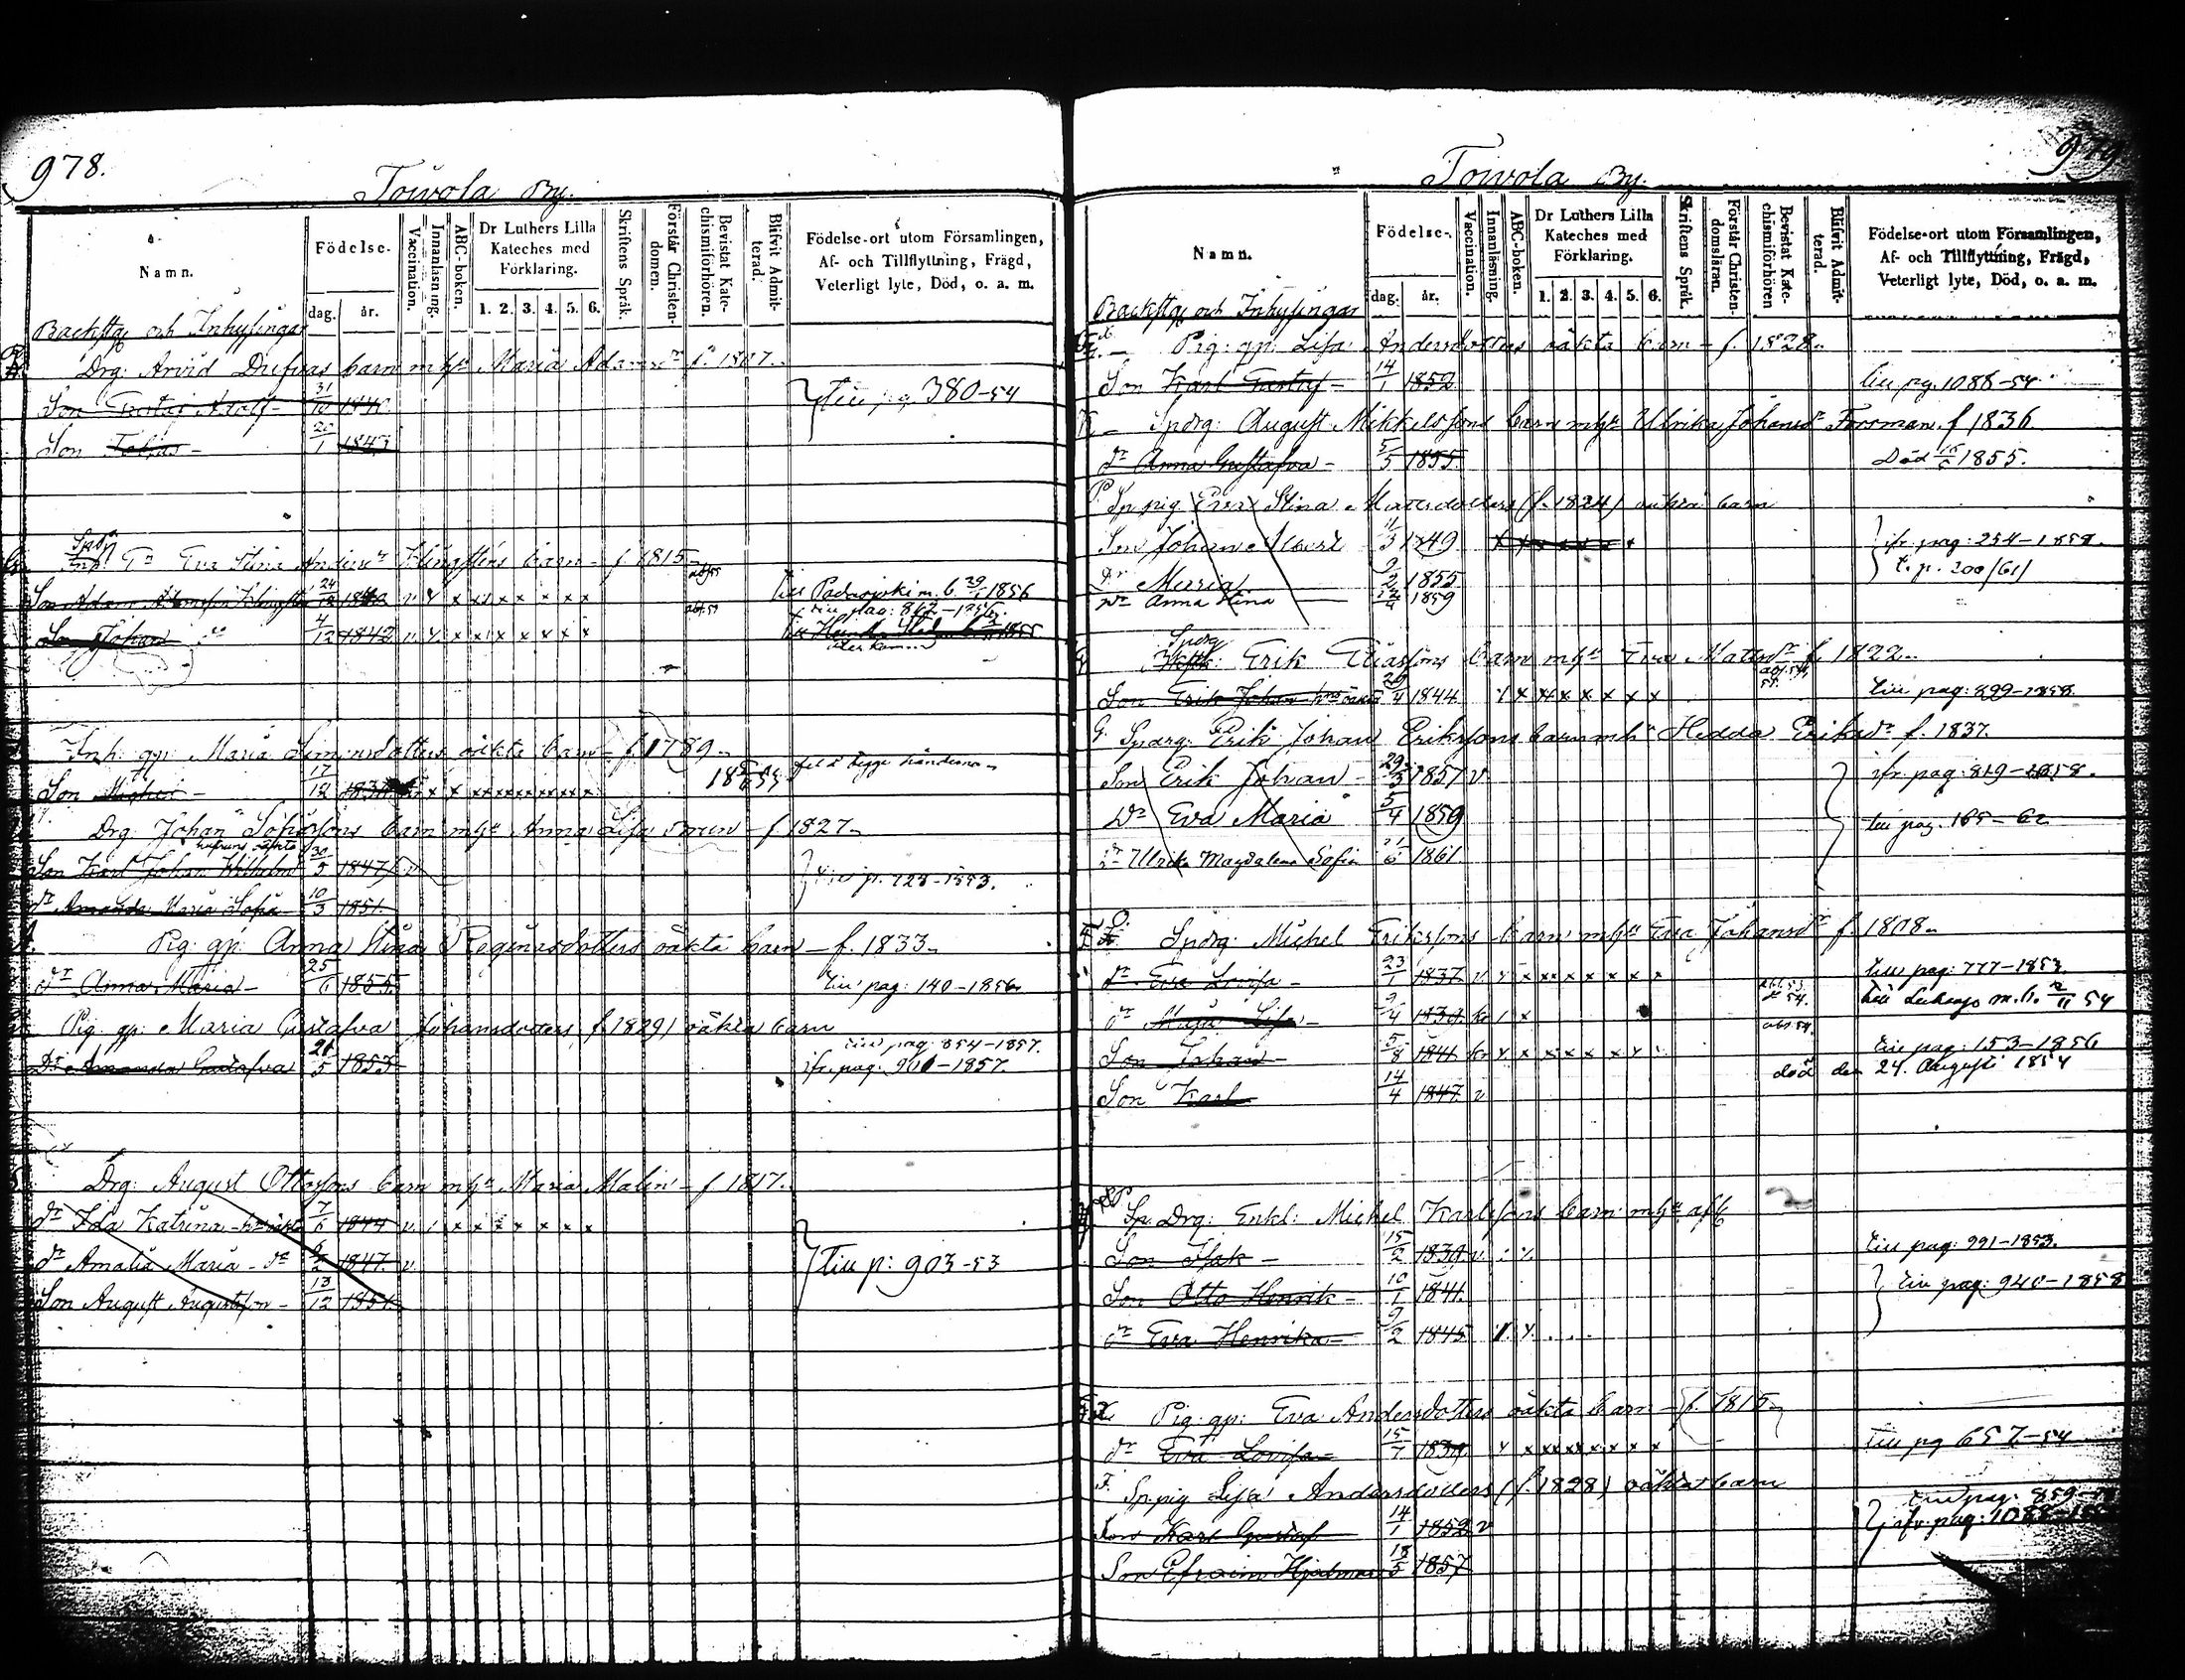 978.
Toivola By.
Namn.
Födelse-
dag.
år.
Vaccination.
Innanläsning.
ABC-boken.
Dr Luthers Lilla
Kateches med
Förklaring.
1. 2. 3. 4. 5. 6.
Skriftens Språk.
Förstår Christen-
domen.
Bevistat Kate-
chismiförhören.
Blifvit Admit-
terad.
Födelse-ort utom Församlingen,
Af- och Tillflyttning, Frägd,
Veterligt lyte, Död, o. a. m.
Backstg och Inhysingar
Drg: Arvid Dufvas barn mhu Maria Adamsdr f. 1807.
Son Gustaf Adolf - 31/10
till pag 380-54
Son 20/1 1843
Eva Stina Andersdr Klingsténs barn - f. 1815
Son Adam 24/12 v x x x x x x x x
till Padasjoki m. b. 29/1 1856
Son Johan 4/12 1842 v x x x x x x x x
till pag: 862-
Inh: gp: Maria Simonsdotters oäkta barn - f. 1789
Son Michel - 17/12
fel i begge händerna
Drg: Johan barn mhu Anna Lisa f. 1827
Son Karl Johan Wilhelm 30/5 1847 v
till p. 723-1853.
dr Amanda Maria Sofia 10/3 1851.
Pig: gp: Anna Stina Reginasdotters oäkta barn - f. 1833
dr Anna Maria - 25/6 1855
till pag: 140-1856.
Pig: gp: Maria Gustafva Johansdotters f. 1829) oäkta barn
till pag: 854-1857.
Dr Amanda Gustafva 21/5 1853
jfr. pag: 961-1857.
Drg: August Ottossons barn mhu Maria Malin - f 1817.
dr Ida Katrina - 7/6 1844 v x x x x x x x
dr Amalia Maria - dr 1847. v.
Till p: 903-53
Son August Augustsson - 13/12 1851
979
Toivola By.
Namn.
Födelse-
dag.
år.
Vaccination.
Innanläsning.
ABC-boken.
Dr Luthers Lilla
Kateches med
Förklaring.
1. 2. 3. 4. 5. 6.
Skriftens Språk.
Förstår Christen-
domsläran.
Bevistat Kate-
chismiförhören
Blifvit Admit-
terad.
Födelse-ort utom Församlingen,
Af- och Tillflyttning, Frägd,
Veterligt lyte, Död, o. a. m.
Backstg och Inhysingar
Pig: gp: Lisa Andersdotters oäkta barn - f 1828.
Son Karl Gustaf - 14/1 1852
till pg. 1088-54
Spdrg: August Mikkelssons barn mhu Ulrika Johansdr Forsman f 1836.
dr Anna Gustafva - 5/5 1855
Död 1855.
Sp pig Eva Stina Mattsdotters (f. 1824) oäkta barn
Son Johan Albert 11/3 1849 x x x x x x x
jfr. pag: 254-1858.
Dr Maria 2/2 1855
t. p. 200/61)
Dr Anna Stina 1859
Spdrg
Erik Eliassons barn mhu Eva Mattsdr f. 1822.
Son Erik Johan 20/4 1844 x x x x x x x x
till pag: 899-1858.
Spdrg: Erik Johan Erikssons barn mhu Hedda Eriksdr f. 1837.
Son Erik Johan - 29/3 1857 v
jfr pag: 819-1858.
Dr Eva Maria 5/4 1859
till pag. 165-62
Dr Ulrika Magdalena Sofia 1861
Spdrg: Michel Erikssons barn mhu Eva Johansdr f. 1808.
dr Eva Lovisa - 23/1 1837. v x x x x x x x
till pag: 777-1853.
dr Maja Lisa - 9/4 1839 x
till m. b. 54
Son Johan - 5/8 1841 x x x x x x
till pag: 153-1856
Son Karl 14/4 1847 v
död den 24. Augusti 1854
Sp. Drg: Enkl: Michel Karlssons barn mhu afl:
Son Isak - 15/2 1839 v
till pag: 991-1853.
Son Otto Henrik - 10/1 1841.
till pag: 940-1858
dr Eva Henrika - 9/2 1845
Pig: gp: Eva Andersdotters oäkta barn - f. 1815
dr Eva Lovisa - 15/7 1839 x x x x x x x x
till pg 657-54
Sp. pig Lisa Andersdotters (f. 1828) oäkta barn
till pag: 859-
Son Karl Gustaf 14/1 1852 v
jfr. pag: 1088-
Son Efraim Hjalmar 18/5 1857